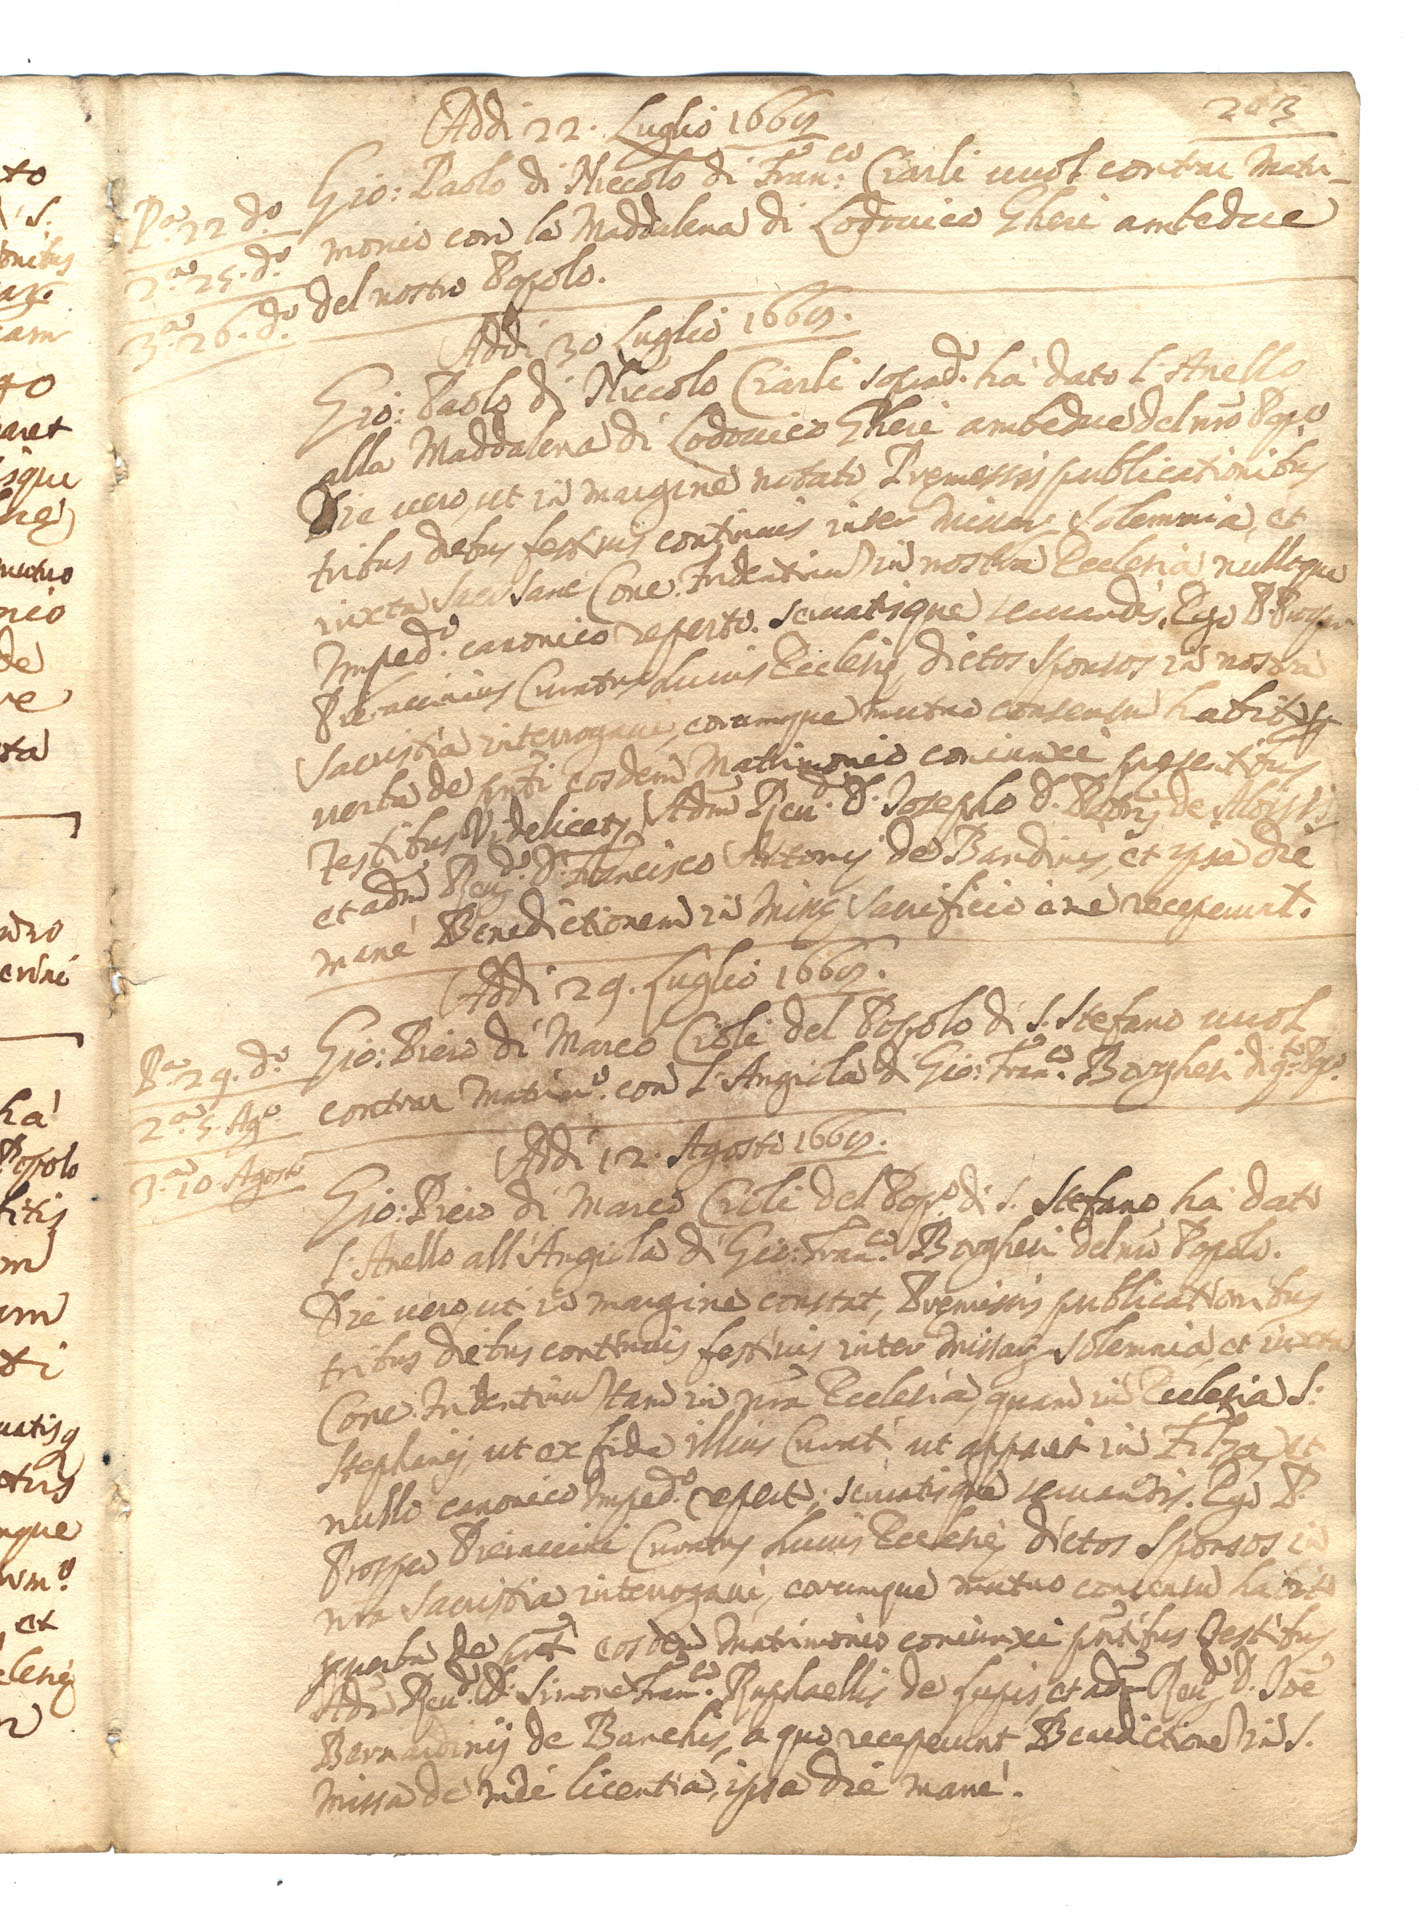 203
Addi 22. Luglio 1669
Gio: Paolo di Niccolo di Fran.co Ciarli vuol contrar Matri-
P.a 22 d.o
monio con la Maddalena di Lodovico Gheri ambedue
2.a 25. d.o
del nostro Popolo.
3.a 26. d.o
Addi 30 Luglio 1669.
Gio: Paolo di Niccolo Ciarli sop.ad.o ha dato l'Anello
alla Maddalena di Lodovico Gheri ambedue del nro Pop.o
Die uero, ut in margine notato Premessis publicationibus
tribus diebus festiuis continuis inter Missar solemnia, et
iuxta Sac. Conc. Tridentinu in nostra Ecclesia nulloque
Imped.o canonico reperto. seruatisque seruandis. Ego P. Prosper
Pieraccinius Curatus huius Ecclesie, dictos Sponsos in nostra
Sacristia interrogaui, eorumque mutuo consensu habito p
uerba de pnti eosdem Matrimonio coniunxi presentibus
Testibus Videlicet Adm Reu.d D. Josepho D. de Aloisijs
et adm Reu.d D. Francisco Antonij de Bandinis, et ipsa die
mane Benedictionem in Misse Sacrificio a me receperunt.
Addi 29. Luglio 1669.
Gio: Piero di Marco Cioli del Popolo di S. Stefano vuol
P.a 29. d.o
contrar Matrim.o con l'Angiola di Gio: Fran.co Borghesi di q.to Pop.o
2.a 5. Ag.o
Addi 12. Agosto 1669.
3.a 10. Agosto
Gio: Piero di Marco Cioli del Pop.o di S. Stefano ha dato
l'Anello all'Angiola di Gio: Fran.co Borghesi del nro Popolo.
Die uero, ut in margine constat, Premissis publicationibus
tribus diebus continuis festiuis inter Missar solemnia, et iuxta
Conc. Tridentinu tam in nra Ecclesia, quam in Ecclesia S.
Stephani, ut ex fide illius Curati ut apparet in Filza, et
nullo canonico Imped.o repert. seruatisque seruandis. Ego P.
Prosper Pieraccini Curatus huius Ecclesie dictos Sponsos in
nra Sacristia interrogaui, eorumque mutuo consensu habito
p uerba de pnti eosdem Matrimonio coniunxi pntibus Testibus
Adm Reu.d D. Simone Fran.co Raphaellis de Lupis, et adm Reu.d D. Joe
Bernardinij de Banchis, a quo receperunt Benedictione in S.
Missa de mei licentia, ipsa die mane.